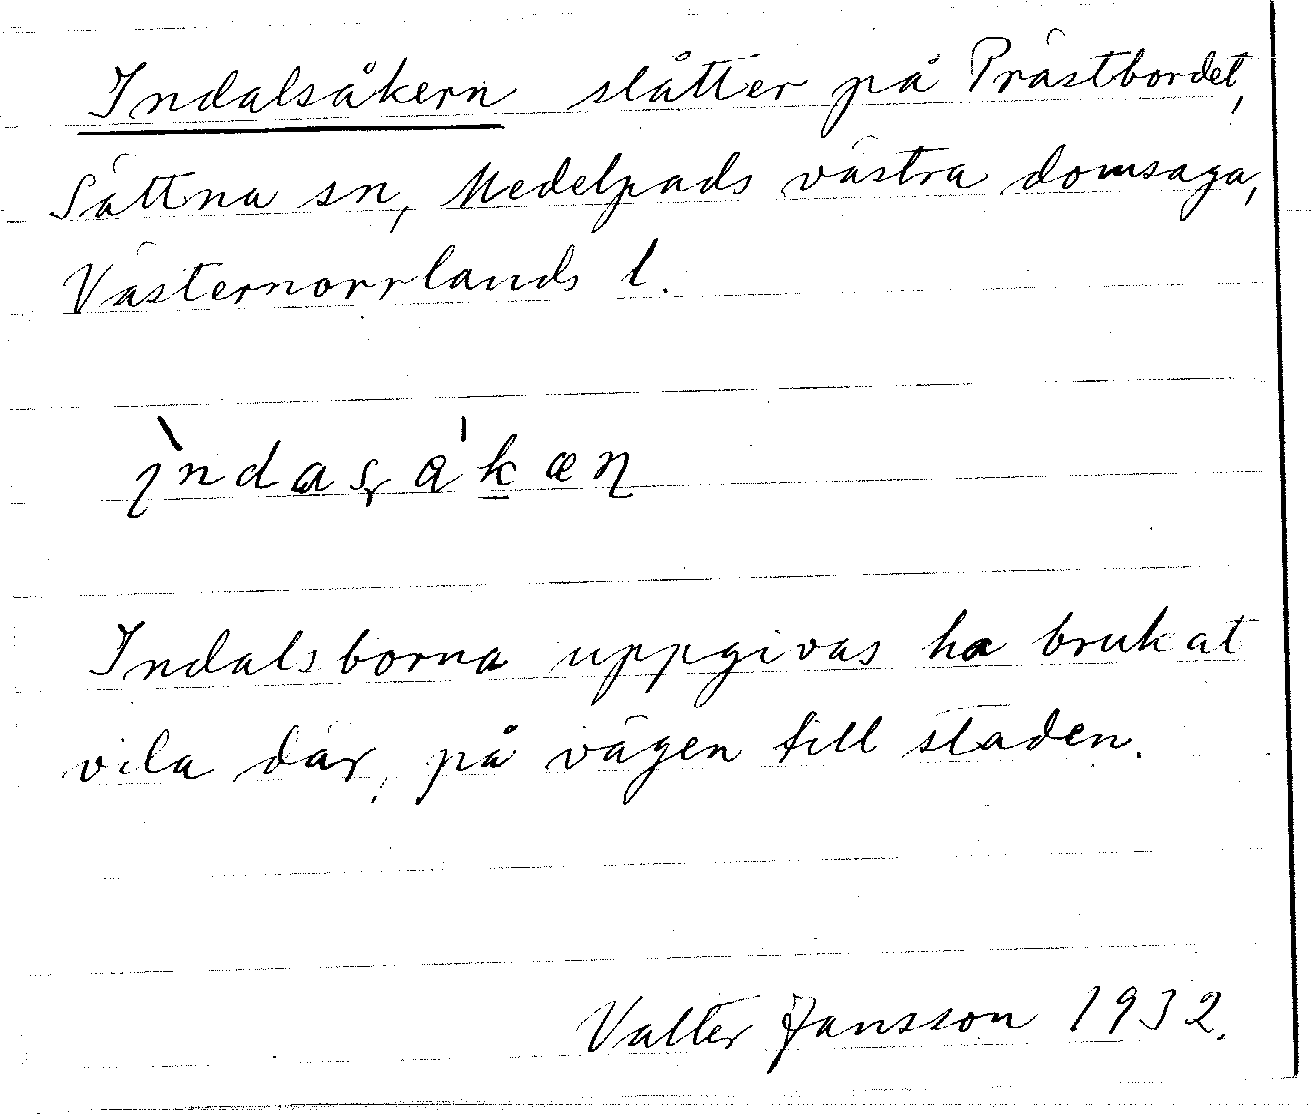 Indalsåkern slåtter på Prästbordet,
Sättna sn, Medelpads västra domsaga,
Västernorrlands l.
ìndaʂa'kæɳ
Indalsborna uppgivas ha brukat
vila där, på vägen till staden.
Valter Jansson 1932.